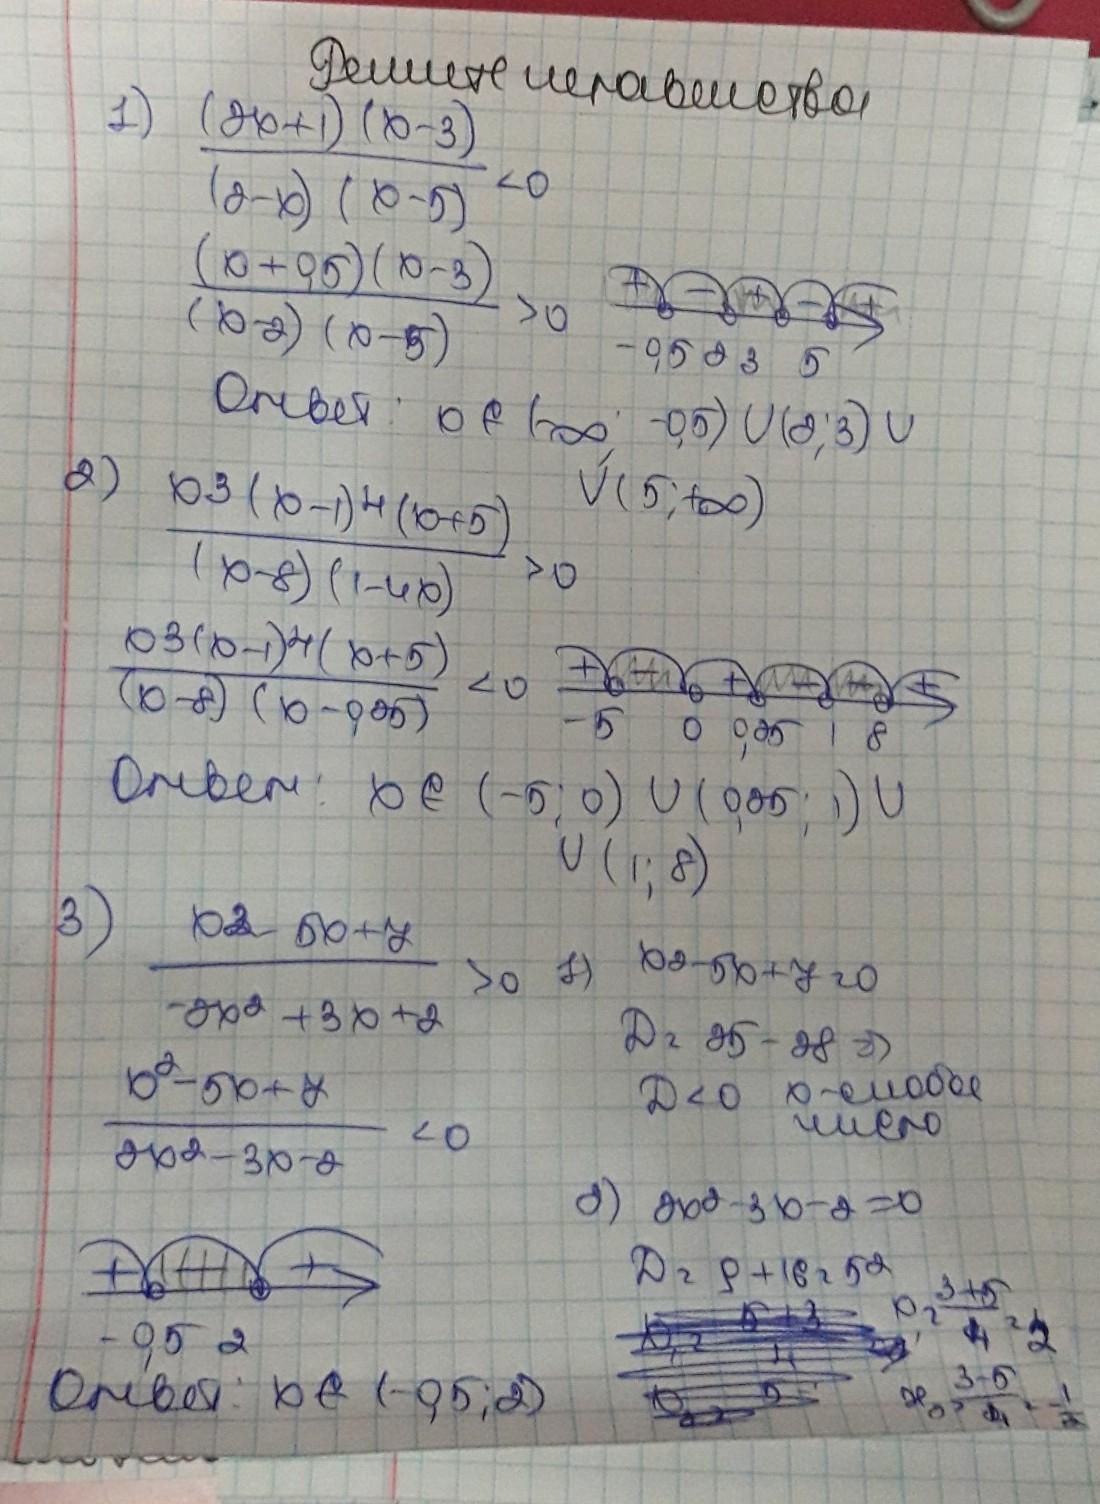 Решите неравенства
1) (2x+1)(x-3)
(2-x)(x-5) <0
(x+0,5)(x-3)
(x-2)(x-5) >0
+ - + - +
-0,5 2 3 5
Ответ: x ∈ (-∞; -0,5) U (2; 3) U
U (5; +∞)
2) x3(x-1)4(x+5)
(x-8)(1-4x) >0
x3(x-1)4(x+5)
(x-8)(x-0,25) <0
+ - + - - +
-5 0 0,25 1 8
Ответ: x ∈ (-5; 0) U (0,25; 1) U
U (1; 8)
3) x2-5x+7
-2x2+3x+2 >0
x²-5x+7
2x2-3x-2 <0
1) x2-5x+7=0
D = 25-28 =>
D<0 x-любое
число
2) 2x2-3x-2=0
D = 9+16=5²
x1=3+5
4 =2
x2=3-5
4 =-1
2
+ - +
-0,5 2
Ответ: x ∈ (-0,5; 2)